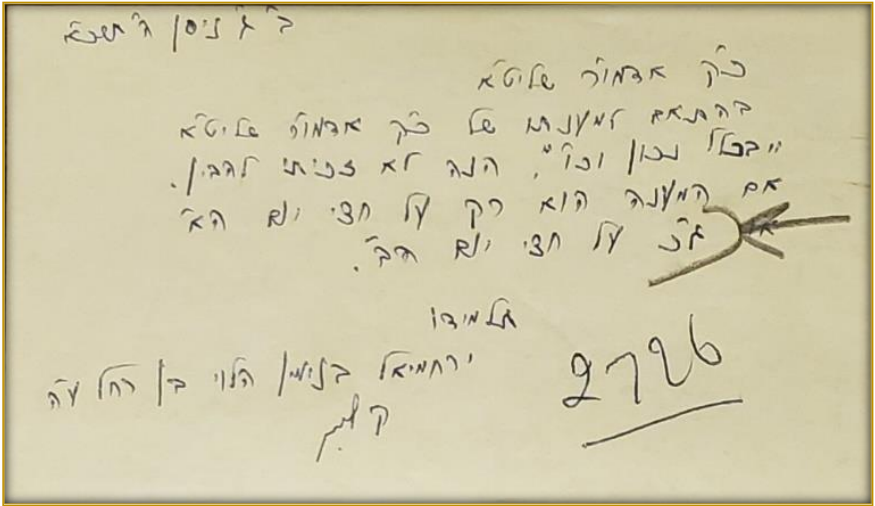 ב"ג ניסן ה'תשכ"א
כ"ק אדמו"ר שליט"א
בהתאם למענתו של כ"ק אדמו"ר שליט"א
"בכלל נכון וכו'". הנה לא זכיתי להבין.
אם המענה הוא רק על חצי יום הא'
או ג"כ על חצי יום הב'.
תלמידו
ירחמיאל בנימין הלוי בן רחל ע"ה
קליין
2726